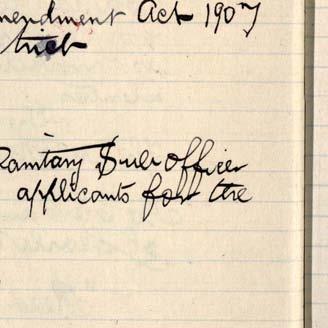 mendment Act 1907
trict
Sanitary Sub Officer
applicants for the